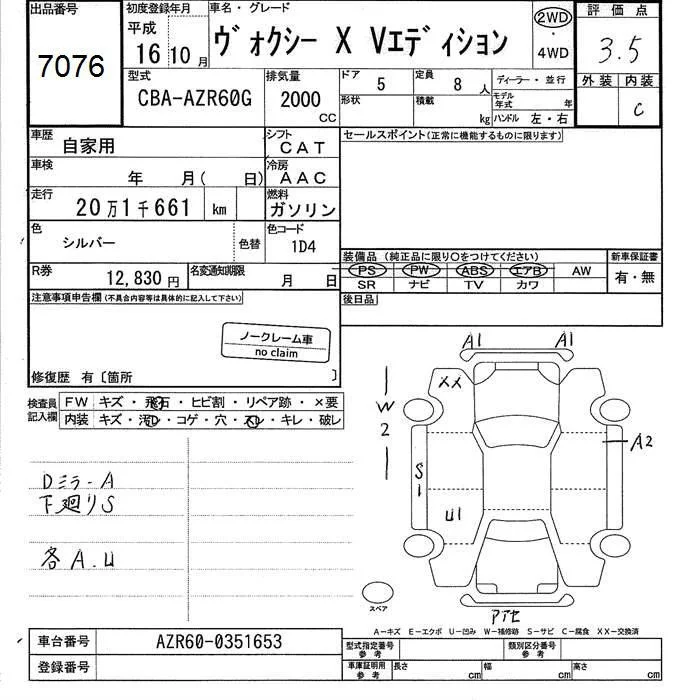 出品番号
7076
初度登録年月
平成
16 10 月
車名・グレード
ヴォクシー X Vエディション
2WD
・
4WD
評価点
3.5
外装 内装
C
型式
CBA-AZR60G
排気量
2000
CC
ドア 5
形状
定員 8 人
積載 kg
ディーラー・並行
モデル年式 年
ハンドル 左・右
車歴
自家用
シフト
CAT
セールスポイント(正常に機能するものに限ります)
車検
年 月( 日)
冷房
AAC
走行
20万1千661 km
燃料
ガソリン
色
シルバー
色替
色コード
1D4
装備品(純正品に限り○をつけてください)
PS PW ABS エアB AW
SR ナビ TV カワ
新車保証書
有・無
R券
12,830円
名変通知期限
月 日
後日品
注意事項申告欄(不具合内容等は具体的に記入して下さい)
ノークレーム車
no claim
修復歴 有〔箇所 〕
検査員
記入欄
FW キズ・飛石・ヒビ割・リペア跡・×要
内装 キズ・汚レ・コゲ・穴・スレ・キレ・破レ
Dミラ-A
下廻りS
各A.U
A1 A1
XX
W
2
S
1
A2
U1
スペア
アアセ
A-キズ E-エクボ U-凹み W-補修跡 S-サビ C-腐食 XX-交換済
車台番号
AZR60-0351653
登録番号
型式指定番号
参考
類別区分番号
参考
車庫証明用
参考
長さ cm
幅 cm
高さ cm